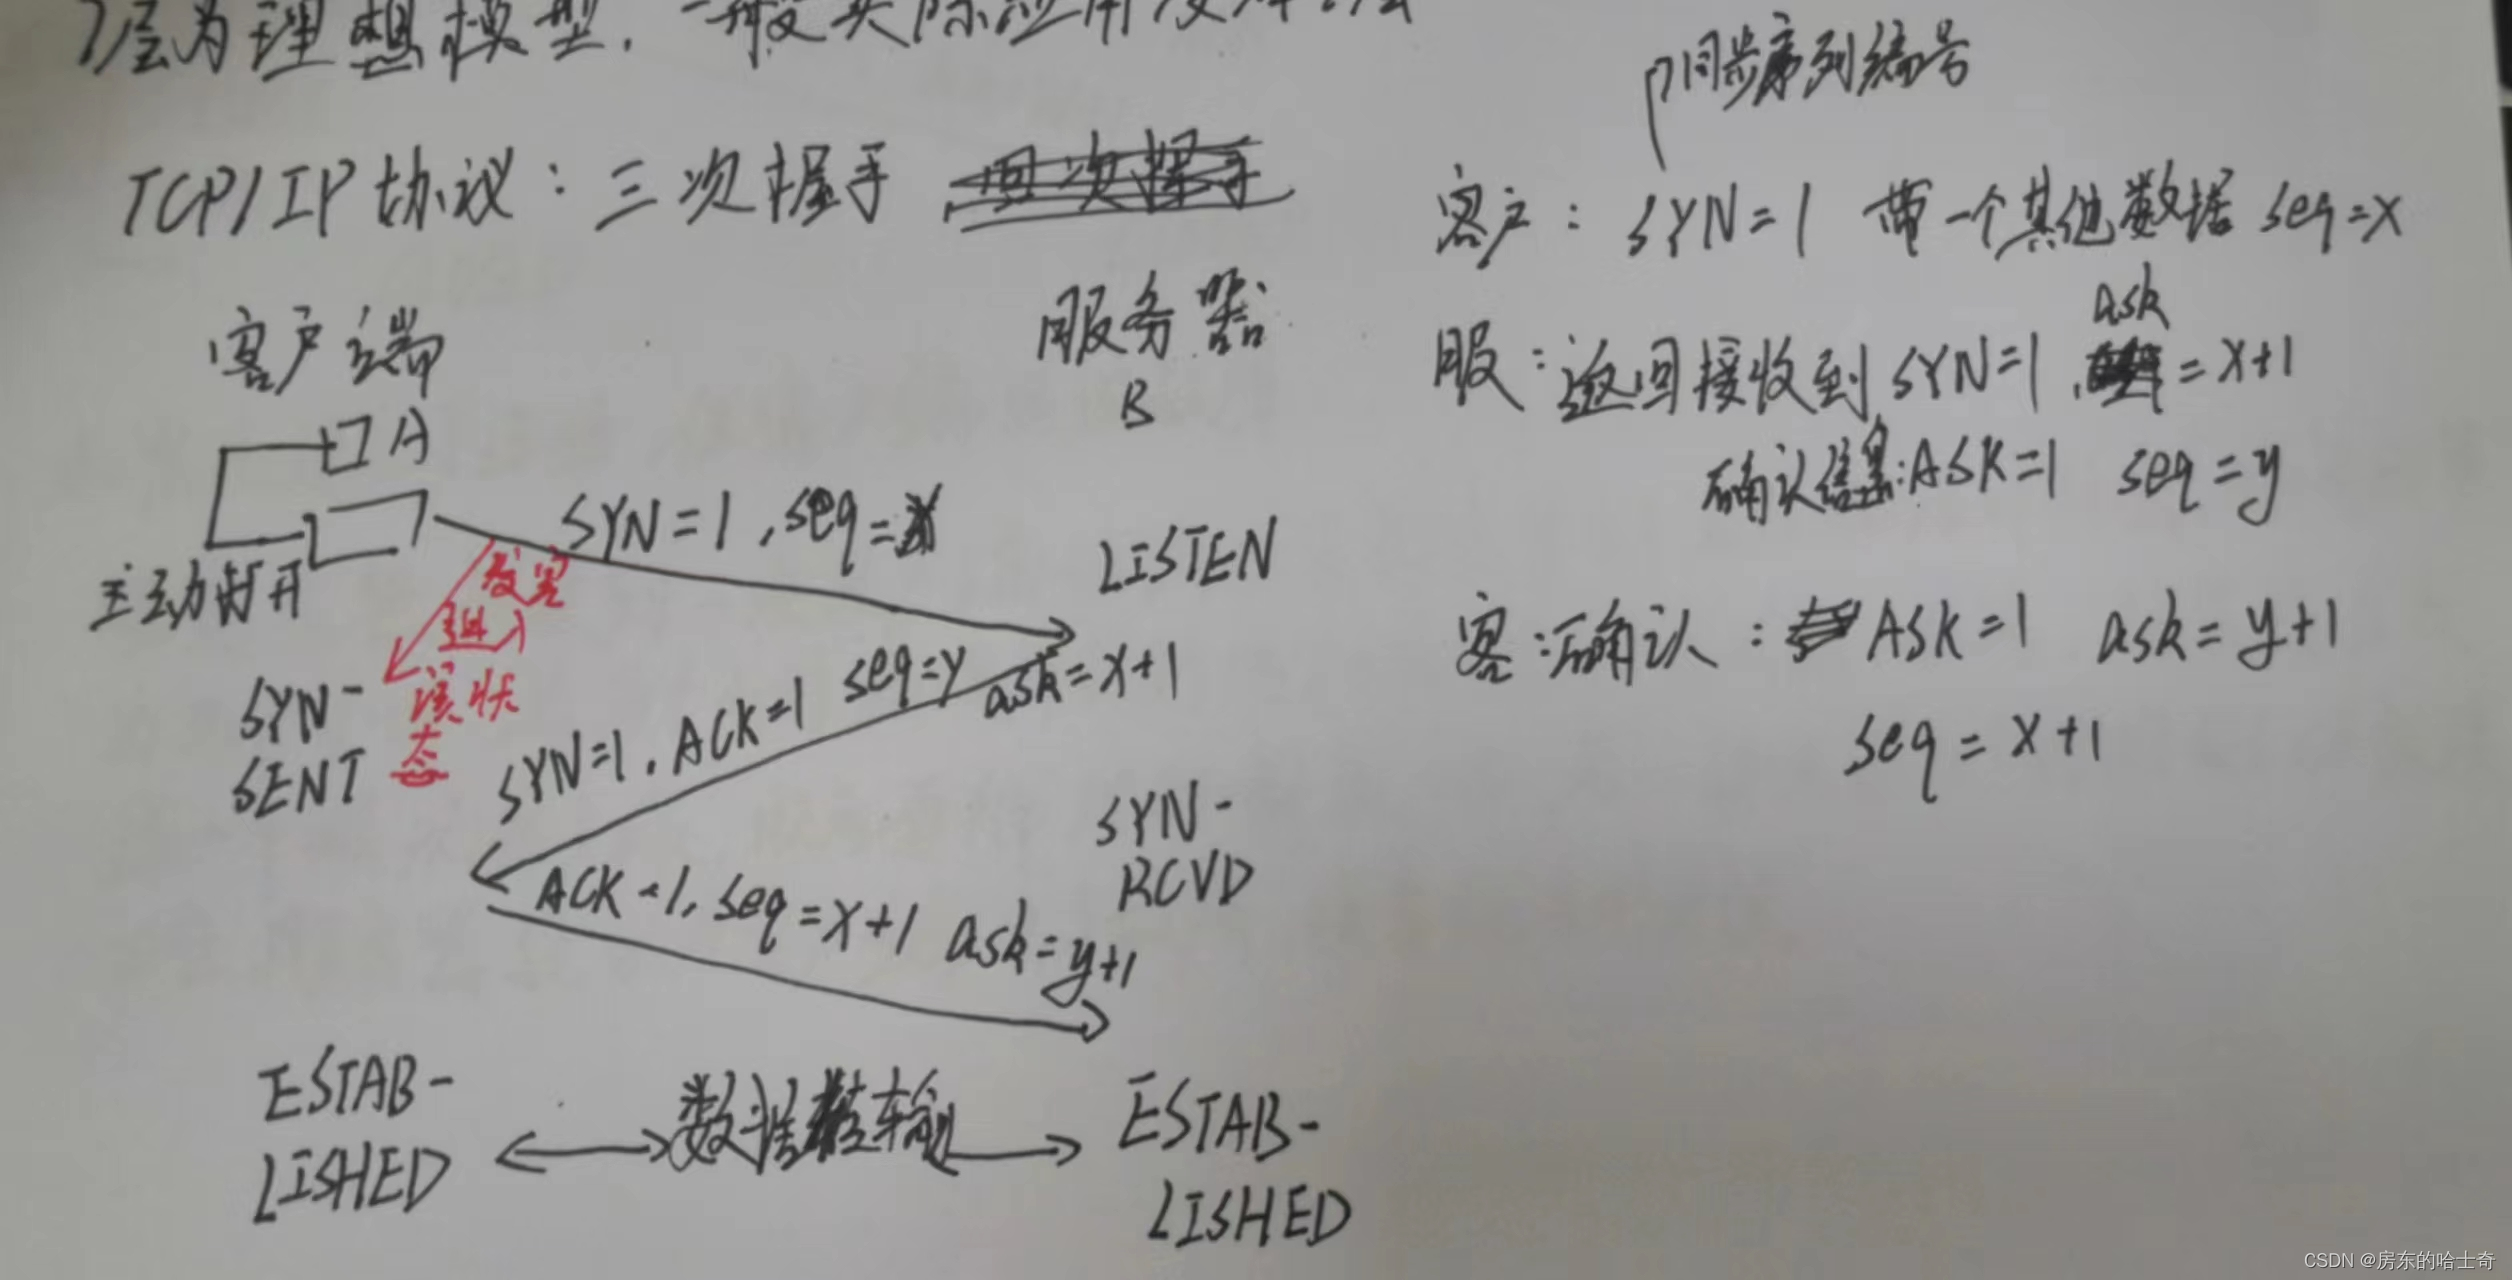 7层为理想模型,一般实际应用
TCP/IP协议:三次握手
客户端
服务器
A
B
主动打开
SYN=1,seq=x
LISTEN
发完
进入
该状
态
SYN-
SENT
SYN=1,ACK=1 seq=y ask=x+1
SYN-
RCVD
ACK=1,seq=x+1 ask=y+1
ESTAB-
LISHED
数据传输
ESTAB-
LISHED
同步序列编号
客户:SYN=1 带一个其他数据 seq=x
服:返回接收到 SYN=1, ask=x+1
确认信息:ASK=1 seq=y
客:确认:ASK=1 ask=y+1
seq=x+1
CSDN @房东的哈士奇